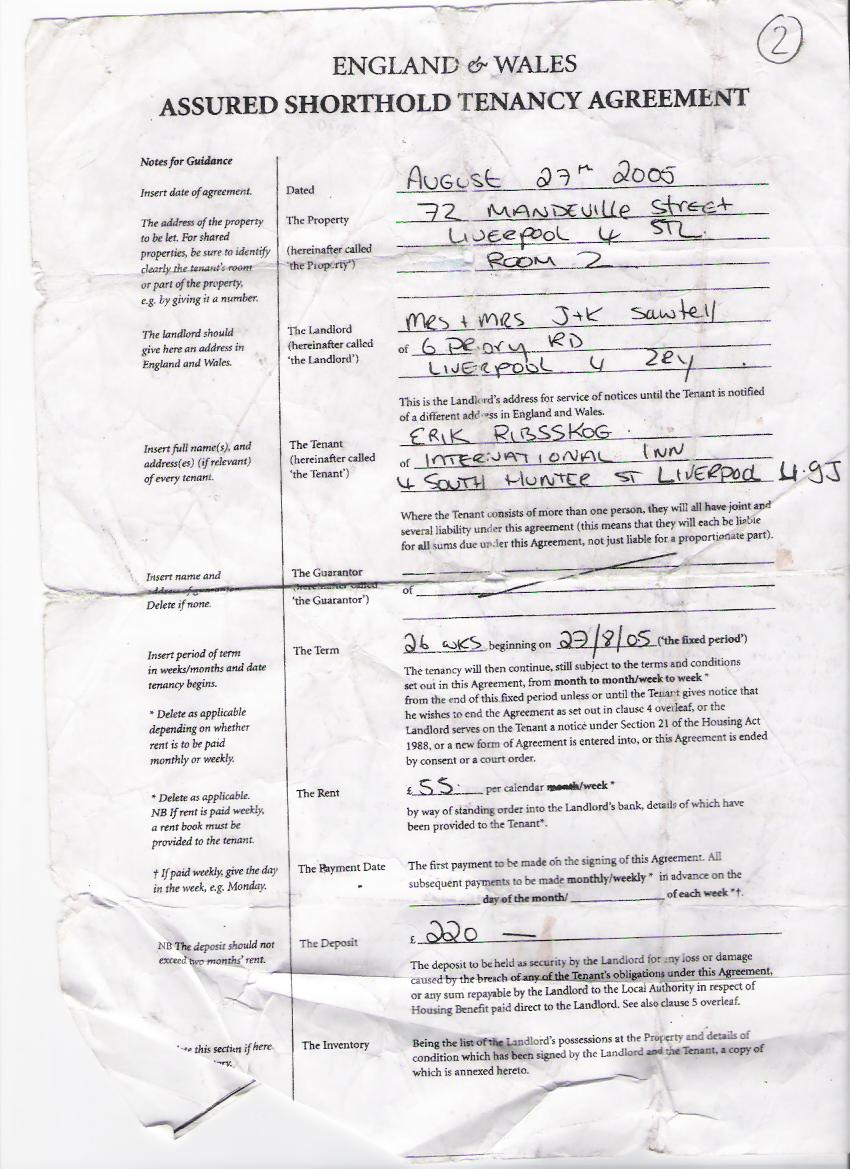 2
ENGLAND & WALES
ASSURED SHORTHOLD TENANCY AGREEMENT
Notes for Guidance
Insert date of agreement.
Dated
AUGUST 27TH 2005
The address of the property
to be let. For shared
properties, be sure to identify
clearly the tenant's room
or part of the property,
e.g. by giving it a number.
The Property
(hereinafter called
'the Property')
72 MANDEVILLE Street
LIVERPOOL 4 5TL.
ROOM 2
The landlord should
give here an address in
England and Wales.
The Landlord
(hereinafter called
'the Landlord')
MRS + MRS J+K Sawtell
of 6 PRIORY RD
LIVERPOOL 4 2RY
This is the Landlord's address for service of notices until the Tenant is notified
of a different address in England and Wales.
Insert full name(s), and
address(es) (if relevant)
of every tenant.
The Tenant
(hereinafter called
'the Tenant')
ERIK RIBSSKOG
of INTERNATIONAL INN
4 SOUTH HUNTER ST LIVERPOOL L1.9J
Where the Tenant consists of more than one person, they will all have joint and
several liability under this agreement (this means that they will each be liable
for all sums due under this Agreement, not just liable for a proportionate part).
Insert name and
address of guarantor.
Delete if none.
The Guarantor
(hereinafter called
'the Guarantor')
of
Insert period of term
in weeks/months and date
tenancy begins.
The Term
26 WKS beginning on 27/8/05 ('the fixed period')
The tenancy will then continue, still subject to the terms and conditions
set out in this Agreement, from month to month/week to week *
from the end of this fixed period unless or until the Tenant gives notice that
he wishes to end the Agreement as set out in clause 4 overleaf, or the
Landlord serves on the Tenant a notice under Section 21 of the Housing Act
1988, or a new form of Agreement is entered into, or this Agreement is ended
by consent or a court order.
* Delete as applicable
depending on whether
rent is to be paid
monthly or weekly.
* Delete as applicable.
NB If rent is paid weekly,
a rent book must be
provided to the tenant.
The Rent
£ 55: per calendar month/week *
by way of standing order into the Landlord's bank, details of which have
been provided to the Tenant*.
† If paid weekly, give the day
in the week, e.g. Monday.
The Payment Date
The first payment to be made on the signing of this Agreement. All
subsequent payments to be made monthly/weekly * in advance on the
day of the month/ of each week *†.
NB The deposit should not
exceed two months' rent.
The Deposit
£ 220 —
The deposit to be held as security by the Landlord for any loss or damage
caused by the breach of any of the Tenant's obligations under this Agreement,
or any sum repayable by the Landlord to the Local Authority in respect of
Housing Benefit paid direct to the Landlord. See also clause 5 overleaf.
this section if here
The Inventory
Being the list of the Landlord's possessions at the Property and details of
condition which has been signed by the Landlord and the Tenant, a copy of
which is annexed hereto.